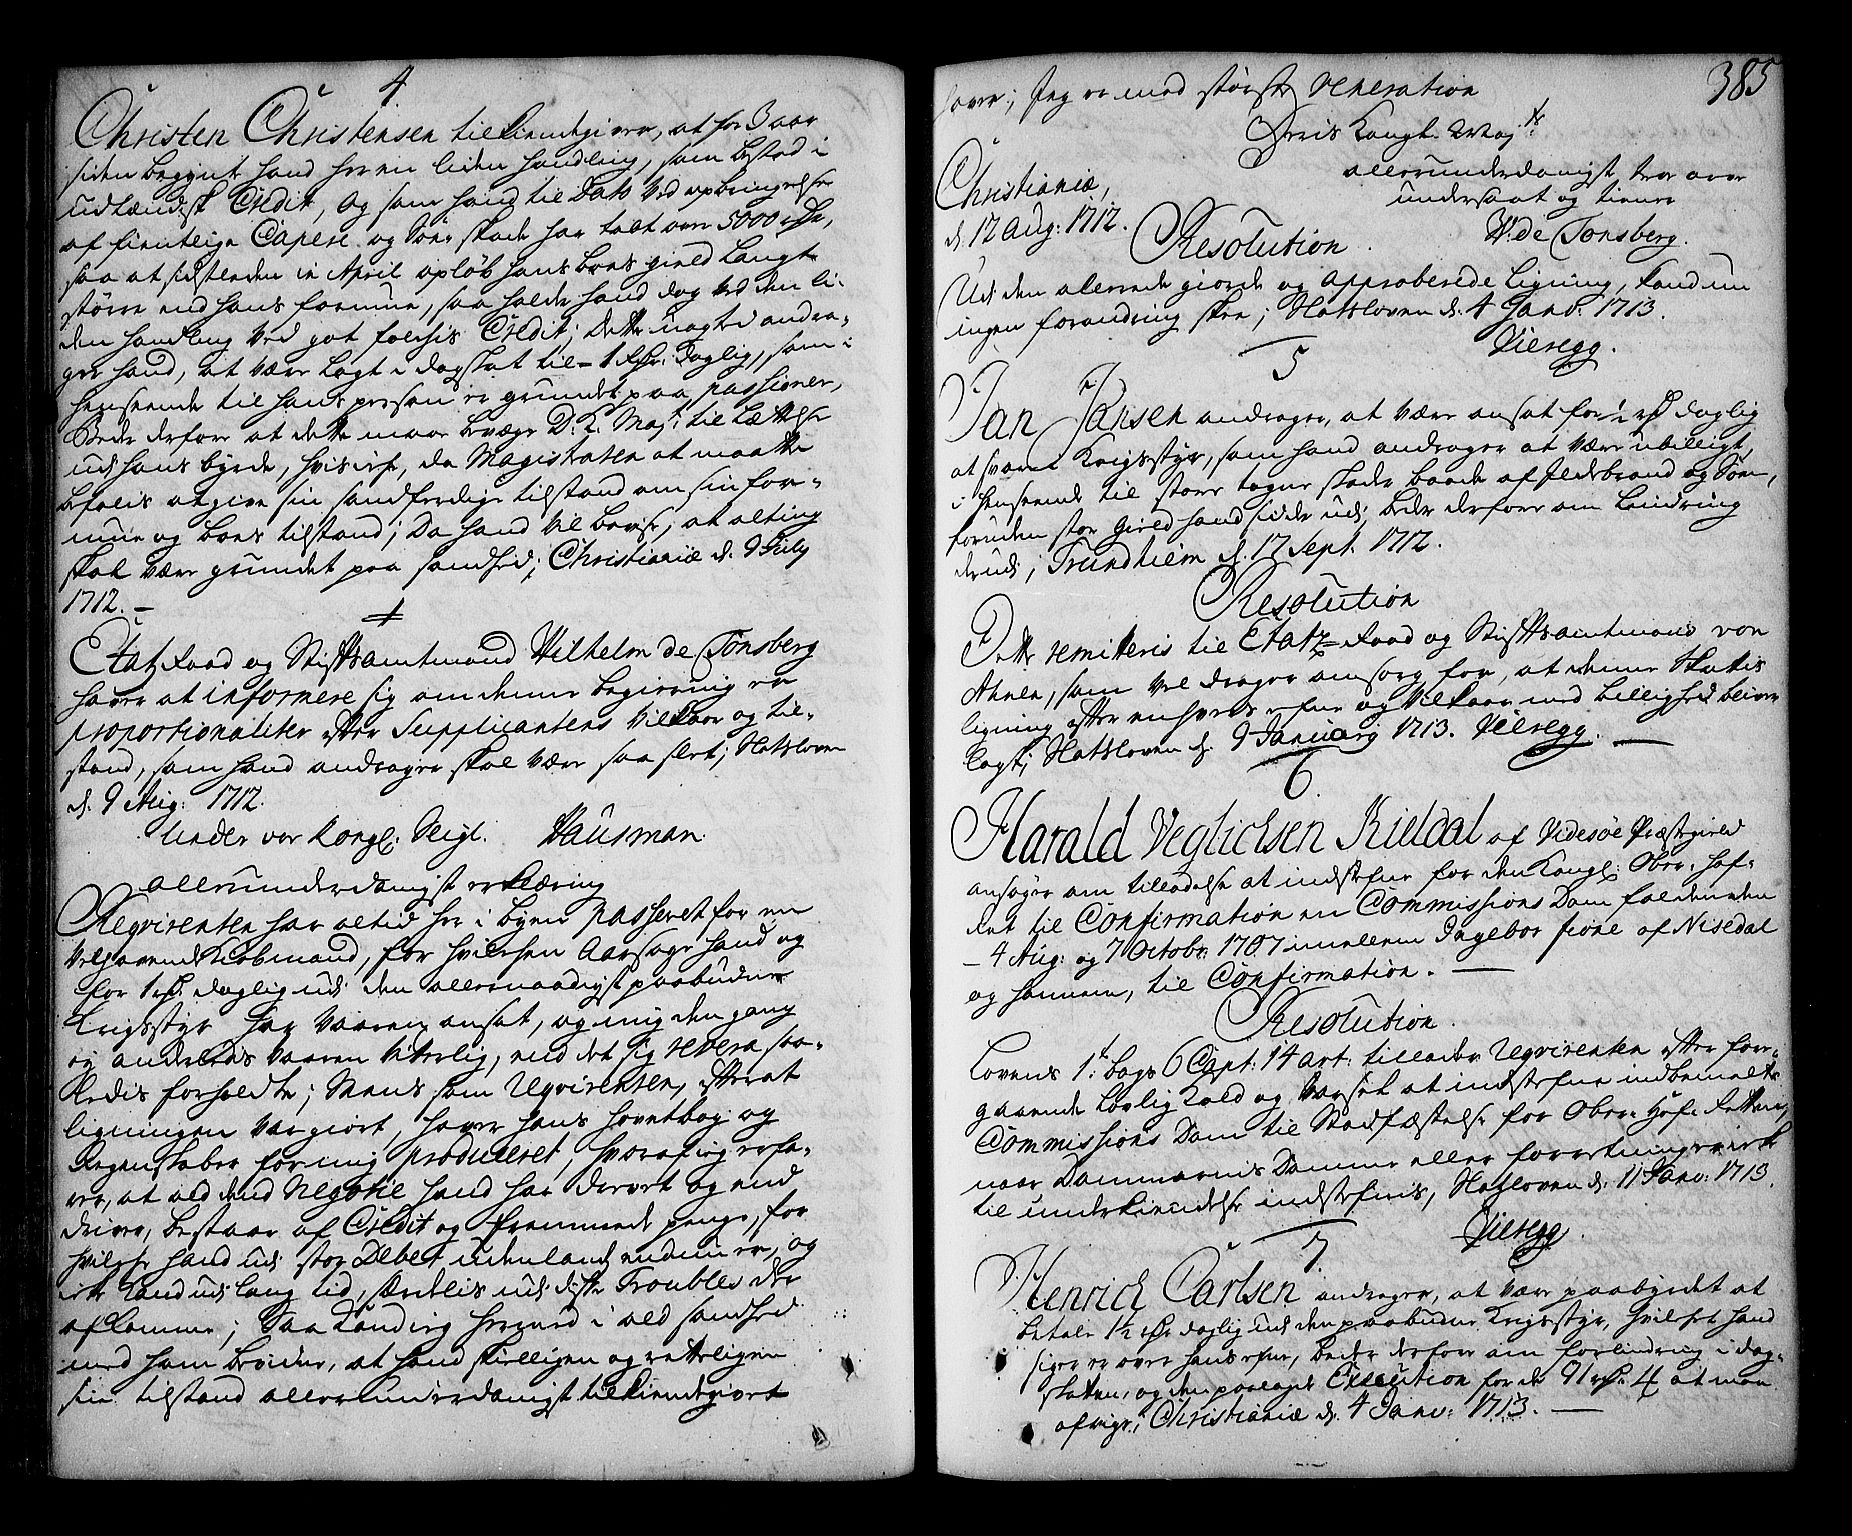 4.
Christen Christensen tilkiendegiver, at for 3 aar
siden begynte hand her en liden handling, som bestod i
udlændisk Credit, og som hand til Dato ved opbringelse
af fientlige Capere og Søe-skade har tabt over 5000 rdr,
saa at sidstleden in April opløb hans boes gield langt
større end hans formue, saa holder hand dog ved den li-
den handling ved got folchis Credit; Dette uagted andra-
ger hand, at være lagt i dagskat til 1 rdr: daglig, som i
henseende til hans person er grundet paa passioner,
Beder derfore at dette maa bevæge D: K: Maj:t til Lættelse
udi hans byrde, hvis icke, da Magistraten at maatte
befales at give sin sandferdige tilstand om sin for-
mue og boes tilstand; Da hand vil bevise, at alting
skal være grundet paa sandhed; Christianiæ d. 9 July
1712. —
Etatz Raad og Stiftsamtmand Wilhelm de Tonsberg
haver at informere sig om denne begiering er
proportionaliter efter Supplicantens vilkaar og til-
stand, som hand andrager skal være saa slet; Slotsloven
d. 9 Aug: 1712.
Under vor Kongl: Seigl. Hausman.
allerunderdanigst erklæring
Reqvirenten har altid her i byen passeret for en
velhavende Kiøbmand, for hvilchen Aarsage hand og
for 1 rdr. daglig udi den allernaadigst paabudne
Krigsstyr har vaaren ansat, og mig den gang
ey anderledes vaaren vitterlig, end det sig revera saa-
ledis forholdte; Mens som Reqvirenten, efter at
ligningen var giort, haver hans hovetbog og
Regenskaber for mig produceret, hvoraf ieg erfa-
rer, at ald dend Negotie hand har drevet og end
driver, bestaar af Credit og fremmede penge, for
hvilche hand udi stor Debet udenlands endnu er, og
icke kand udi lang tid, særdelis udi disse Troubles der
afkomme; Saa kand ieg hermed i ald sandhed
med ham bevidne, at hand skielligen og retteligen
sin tilstand allerunderdanigst tilkiendegivet
385
haver; Jeg er med største veneration
Deris Kongl. May:ts
allerunderdanigst, tro
undersaat og tiener
W: de Tonsberg.
Christianiæ,
d. 12 Aug: 1712.
Resolution
Udi den allerede giorde og approberede ligning, kand nu
ingen forandring skee; Slotsloven d. 4 Janv: 1713.
Vieregg.
5
Jan Jansen andrager, at være ansat for ½ rdr daglig
at svare Krigsstyr, som hand andrager at være ubilligt,
i henseende til store tagne skader baade af Ildebrand og Søen,
foruden stor gield hand sidder udi; beder derfore om Lindring
derudi, Trundhiem d. 17 Sept. 1712.
Resolution
Dette remitteris til Etatz-Raad og Stiftsamtmand von
Ahnen, som vel drager omsorg for, at denne Skattis
ligning efter enhvers efne og vilkaar med billighed bliver
lagt; Slotsloven d. 9 January 1713. Vieregg. —
6
Harald Veglichsen Kieldal af Videsøe Præstegield
ansøger om tilladelse at indstefne for den Kongl: Ober-Hof-
Ret til Confirmation en Commissions Dom falden den
4 Aug: og 7 Octobr: 1707 imellem Ingebor fione af Nisedal
og hannem, til Confirmation. —
Resolution.
Lovens 1:t bogs 6 Capt: 14 art: tillader Reqvirenten efter fore-
gaaende Lovlig kald og varsel at indstefne indbemelte
Commissions Dom til Stadfæstelse for Ober-Hof-Retten,
naar Dommernis Domme eller forretninger
til underkiendelse indstefnis, Slotsloven d. 11 Janv: 1713.
Vieregg.
7.
Henrich Carlsen andrager, at være paabyrdet at
betale 1½ rdr daglig udi den paabudne Krigsstyr, hvilchet hand
siger er over hans efne, beder derfore om forlindring i dag-
skatten, og den paalagt Execution for de 91 rdr 4
afviges; Christianiæ d. 4 Janv: 1713. —